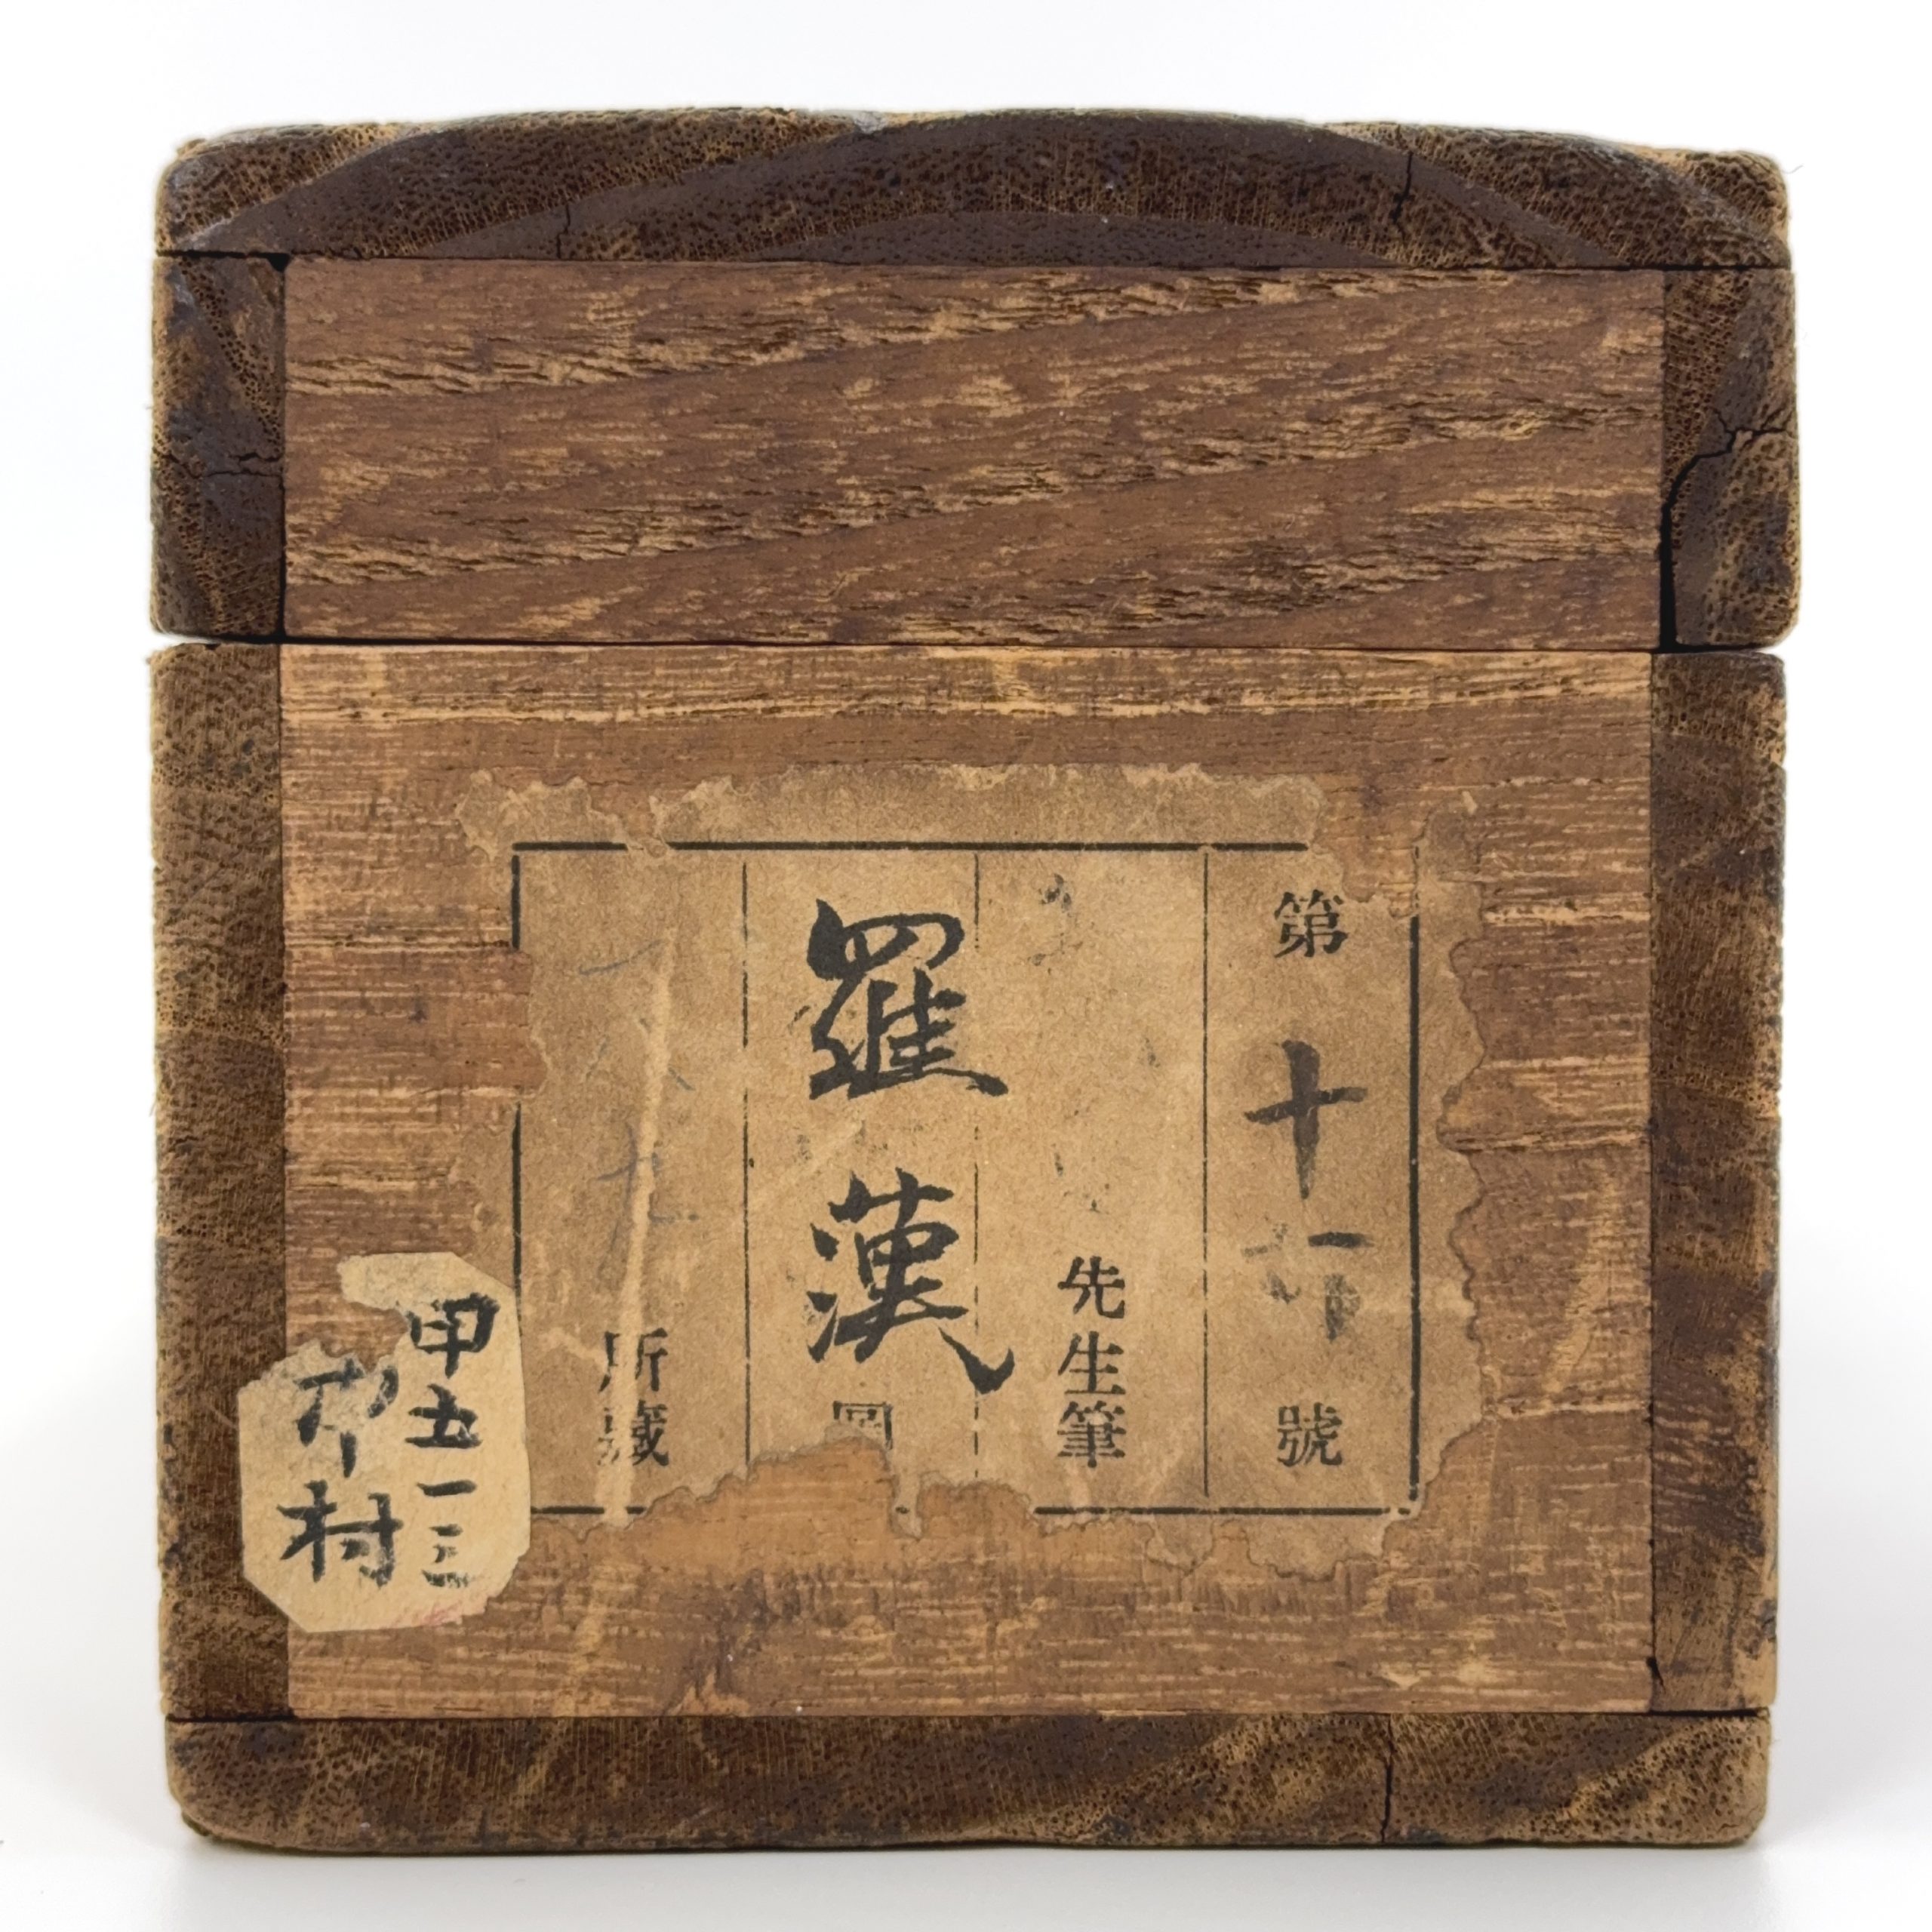 第十 號
先生筆
羅漢圖
所藏
甲五一三
村